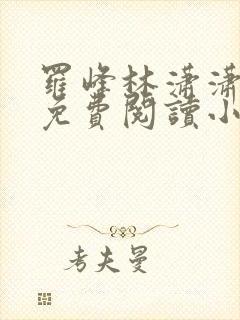 羅峰林瀟瀟
免費閱讀小
考夫曼